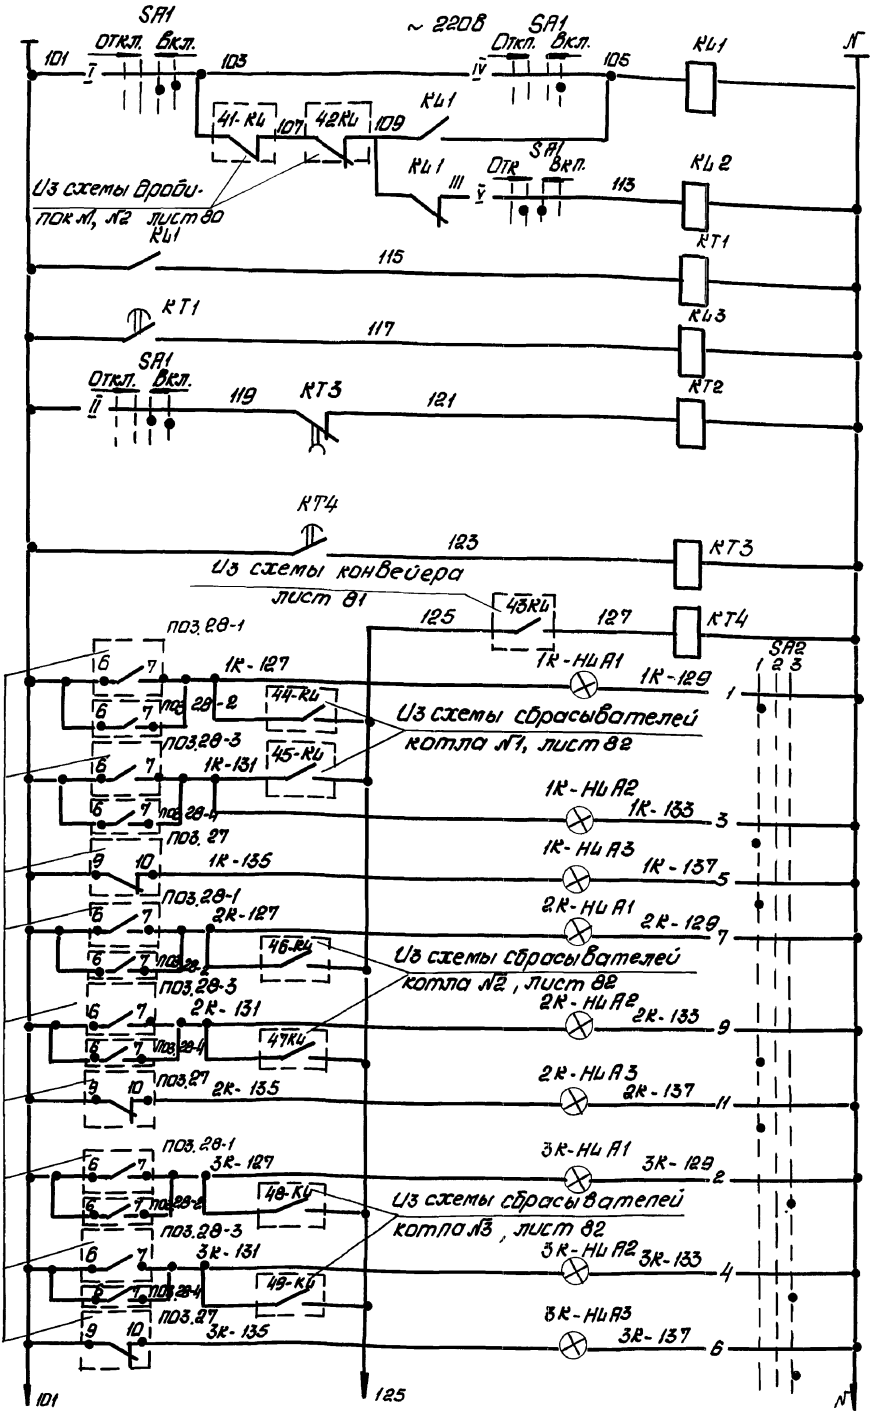 SA1
~ 220В
SA1
101
Откл.
Вкл.
I
103
IV
Откл.
Вкл.
105
KL1
N
41-KL
107
42KL
109
KL1
Из схемы дроби-
лок N1, N2 лист 80
KL1
111
V
SA1
Отк
Вкл.
113
KL2
KL1
115
KT1
KT1
117
KL3
SA1
Откл.
Вкл.
II
119
KT3
121
KT2
KT4
123
KT3
Из схемы конвейера
лист 81
125
43KL
127
KT4
SA2
1 2 3
поз.28-1
6 7
1К-127
1К-HLA1
1К-129
1
6 7
поз 28-2
44-KL
Из схемы сбрасывателей
котла N1, лист 82
поз.28-3
6 7
1К-131
45-KL
6 7
поз.28-4
1К-HLA2
1К-133
3
поз.27
9 10
1К-135
1К-HLA3
1К-137
5
поз.28-1
6 7
2К-127
2К-HLA1
2К-129
7
6 7
поз.28-2
46-KL
Из схемы сбрасывателей
котла N2, лист 82
поз.28-3
6 7
2К-131
2К-HLA2
2К-133
9
6 7
поз.28-4
47KL
поз.27
9 10
2К-135
2К-HLA3
2К-137
11
поз.28-1
6 7
3К-127
3К-HLA1
3К-129
2
6 7
поз.28-2
48-KL
Из схемы сбрасывателей
котла N3, лист 82
поз.28-3
6 7
3К-131
3К-HLA2
3К-133
4
6 7
поз.28-4
49-KL
поз.27
9 10
3К-135
3К-HLA3
3К-137
6
101
125
N